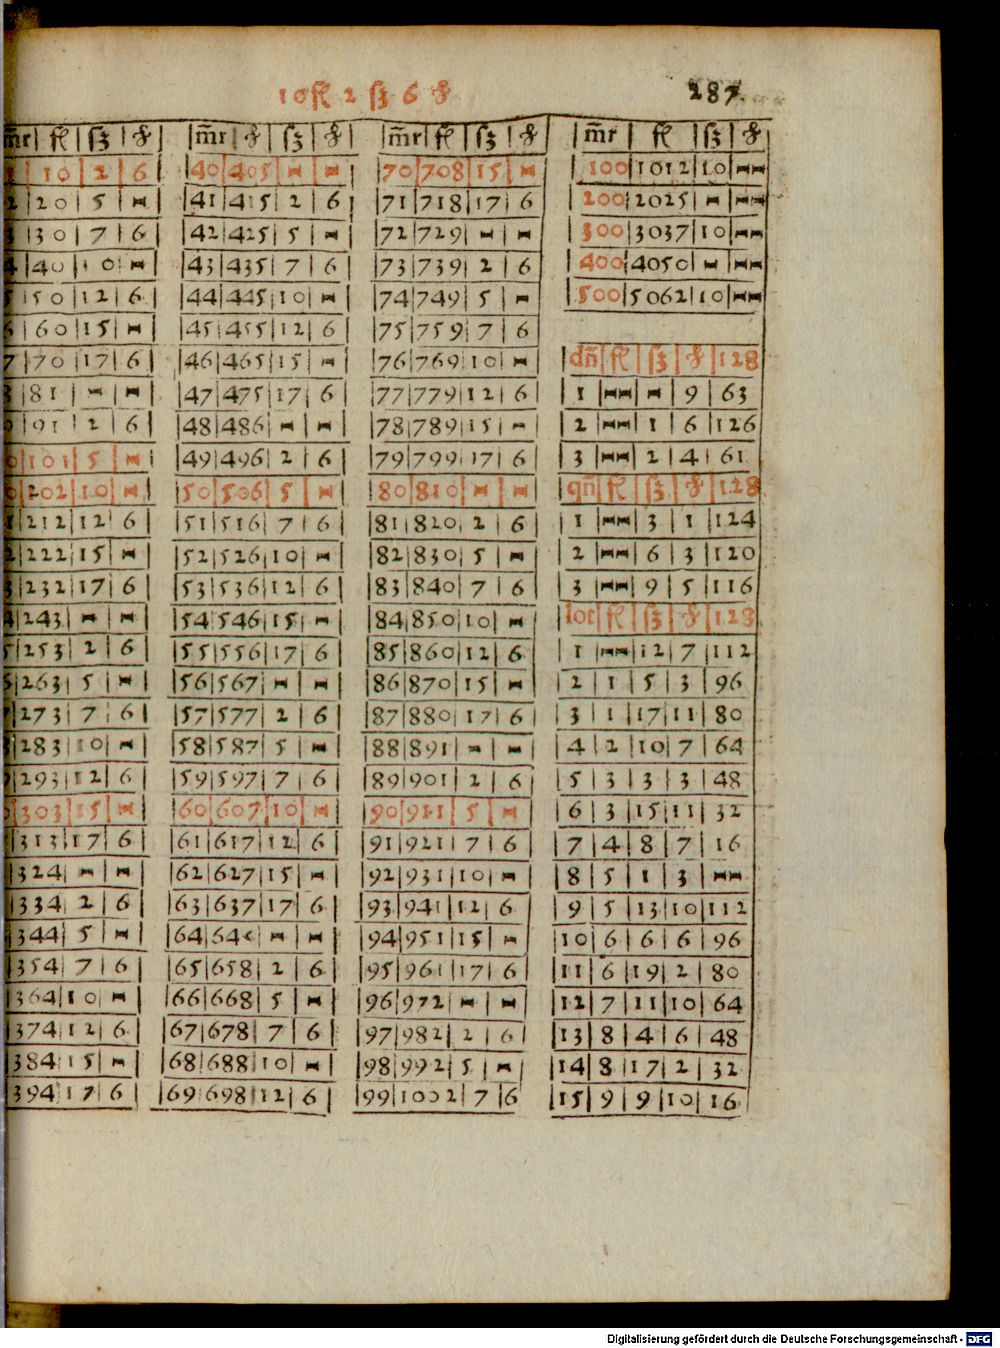 10 fl 2 ß 6 ₰
287
m̄r | fl | ß | ₰ | m̄r | ₰ | ß | ₰ | m̄r | fl | ß | ₰ | m̄r | fl | ß | ₰
10 | 2 | 6 | 40 | 405 | ⧓ | ⧓ | 70 | 708 | 15 | ⧓ | 100 | 1012 | 10 | ⧓⧓
2 | 20 | 5 | ⧓ | 41 | 415 | 2 | 6 | 71 | 718 | 17 | 6 | 200 | 2025 | ⧓ | ⧓⧓
3 | 30 | 7 | 6 | 42 | 425 | 5 | ⧓ | 72 | 729 | ⧓ | ⧓ | 300 | 3037 | 10 | ⧓⧓
4 | 40 | 10 | ⧓ | 43 | 435 | 7 | 6 | 73 | 739 | 2 | 6 | 400 | 4050 | ⧓ | ⧓⧓
5 | 50 | 12 | 6 | 44 | 445 | 10 | ⧓ | 74 | 749 | 5 | ⧓ | 500 | 5062 | 10 | ⧓⧓
6 | 60 | 15 | ⧓ | 45 | 455 | 12 | 6 | 75 | 759 | 7 | 6
7 | 70 | 17 | 6 | 46 | 465 | 15 | ⧓ | 76 | 769 | 10 | ⧓ | dn̄ | fl | ß | ₰ | 128
8 | 81 | ⧓ | ⧓ | 47 | 475 | 17 | 6 | 77 | 779 | 12 | 6 | 1 | ⧓⧓ | ⧓ | 9 | 63
9 | 91 | 2 | 6 | 48 | 486 | ⧓ | ⧓ | 78 | 789 | 15 | ⧓ | 2 | ⧓⧓ | 1 | 6 | 126
0 | 101 | 5 | ⧓ | 49 | 496 | 2 | 6 | 79 | 799 | 17 | 6 | 3 | ⧓⧓ | 2 | 4 | 61
0 | 202 | 10 | ⧓ | 50 | 506 | 5 | ⧓ | 80 | 810 | ⧓ | ⧓ | qn̄ | fl | ß | ₰ | 128
1 | 212 | 12 | 6 | 51 | 516 | 7 | 6 | 81 | 820 | 2 | 6 | 1 | ⧓⧓ | 3 | 1 | 124
2 | 222 | 15 | ⧓ | 52 | 526 | 10 | ⧓ | 82 | 830 | 5 | ⧓ | 2 | ⧓⧓ | 6 | 3 | 120
3 | 232 | 17 | 6 | 53 | 536 | 12 | 6 | 83 | 840 | 7 | 6 | 3 | ⧓⧓ | 9 | 5 | 116
4 | 243 | ⧓ | ⧓ | 54 | 546 | 15 | ⧓ | 84 | 850 | 10 | ⧓ | lot | fl | ß | ₰ | 128
5 | 253 | 2 | 6 | 55 | 556 | 17 | 6 | 85 | 860 | 12 | 6 | 1 | ⧓⧓ | 12 | 7 | 112
6 | 263 | 5 | ⧓ | 56 | 567 | ⧓ | ⧓ | 86 | 870 | 15 | ⧓ | 2 | 1 | 5 | 3 | 96
7 | 273 | 7 | 6 | 57 | 577 | 2 | 6 | 87 | 880 | 17 | 6 | 3 | 1 | 17 | 11 | 80
8 | 283 | 10 | ⧓ | 58 | 587 | 5 | ⧓ | 88 | 891 | ⧓ | ⧓ | 4 | 2 | 10 | 7 | 64
9 | 293 | 12 | 6 | 59 | 597 | 7 | 6 | 89 | 901 | 2 | 6 | 5 | 3 | 3 | 3 | 48
0 | 303 | 15 | ⧓ | 60 | 607 | 10 | ⧓ | 90 | 911 | 5 | ⧓ | 6 | 3 | 15 | 11 | 32
313 | 17 | 6 | 61 | 617 | 12 | 6 | 91 | 921 | 7 | 6 | 7 | 4 | 8 | 7 | 16
324 | ⧓ | ⧓ | 62 | 627 | 15 | ⧓ | 92 | 931 | 10 | ⧓ | 8 | 5 | 1 | 3 | ⧓⧓
334 | 2 | 6 | 63 | 637 | 17 | 6 | 93 | 941 | 12 | 6 | 9 | 5 | 13 | 10 | 112
344 | 5 | ⧓ | 64 | 64 | ⧓ | ⧓ | 94 | 951 | 15 | ⧓ | 10 | 6 | 6 | 6 | 96
354 | 7 | 6 | 65 | 658 | 2 | 6 | 95 | 961 | 17 | 6 | 11 | 6 | 19 | 2 | 80
364 | 10 | ⧓ | 66 | 668 | 5 | ⧓ | 96 | 972 | ⧓ | ⧓ | 12 | 7 | 11 | 10 | 64
374 | 12 | 6 | 67 | 678 | 7 | 6 | 97 | 982 | 2 | 6 | 13 | 8 | 4 | 6 | 48
384 | 15 | ⧓ | 68 | 688 | 10 | ⧓ | 98 | 992 | 5 | ⧓ | 14 | 8 | 17 | 2 | 32
394 | 17 | 6 | 69 | 698 | 12 | 6 | 99 | 1002 | 7 | 6 | 15 | 9 | 9 | 10 | 16
Digitalisierung gefördert durch die Deutsche Forschungsgemeinschaft - DFG